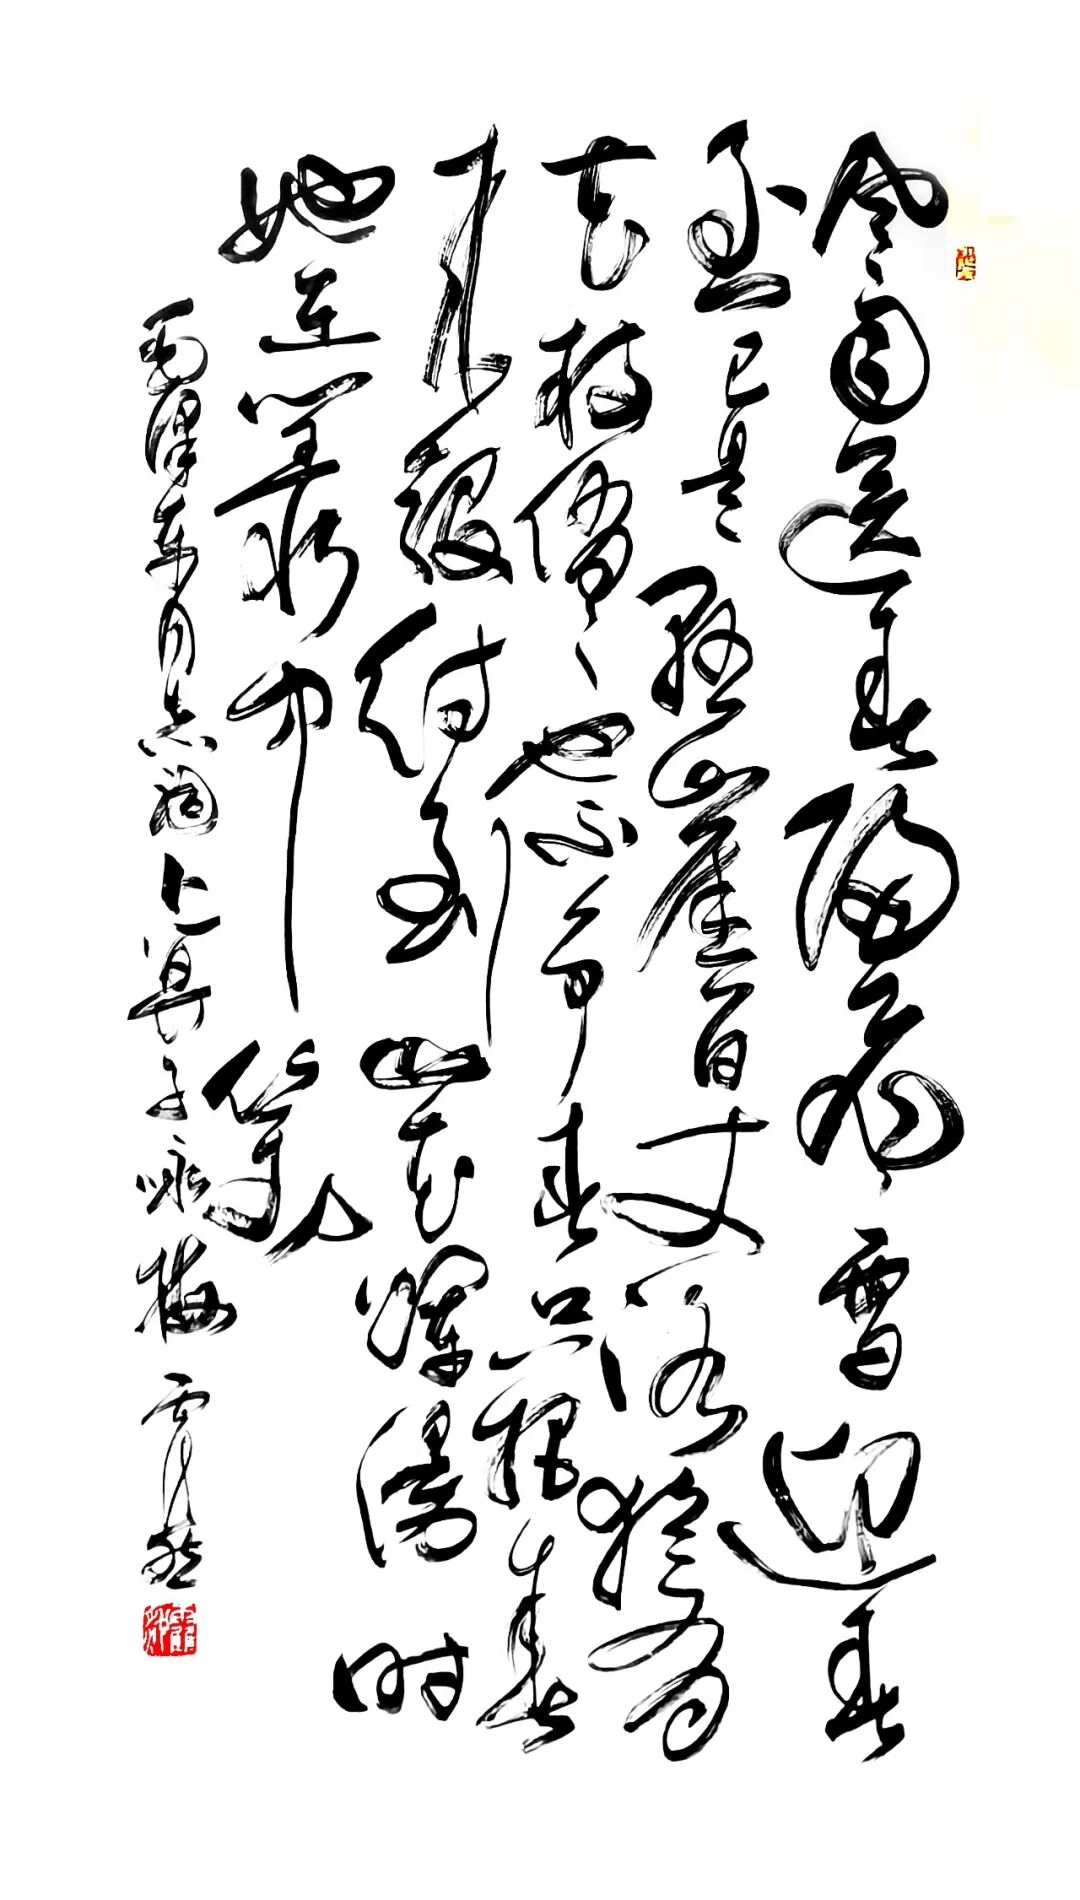 风雨送春归飞雪迎春
到已是悬崖百丈冰犹有
花枝俏〻也不争春只把春
来报待到山花烂漫时
她在丛中笑
毛泽东同志词卜算子咏梅